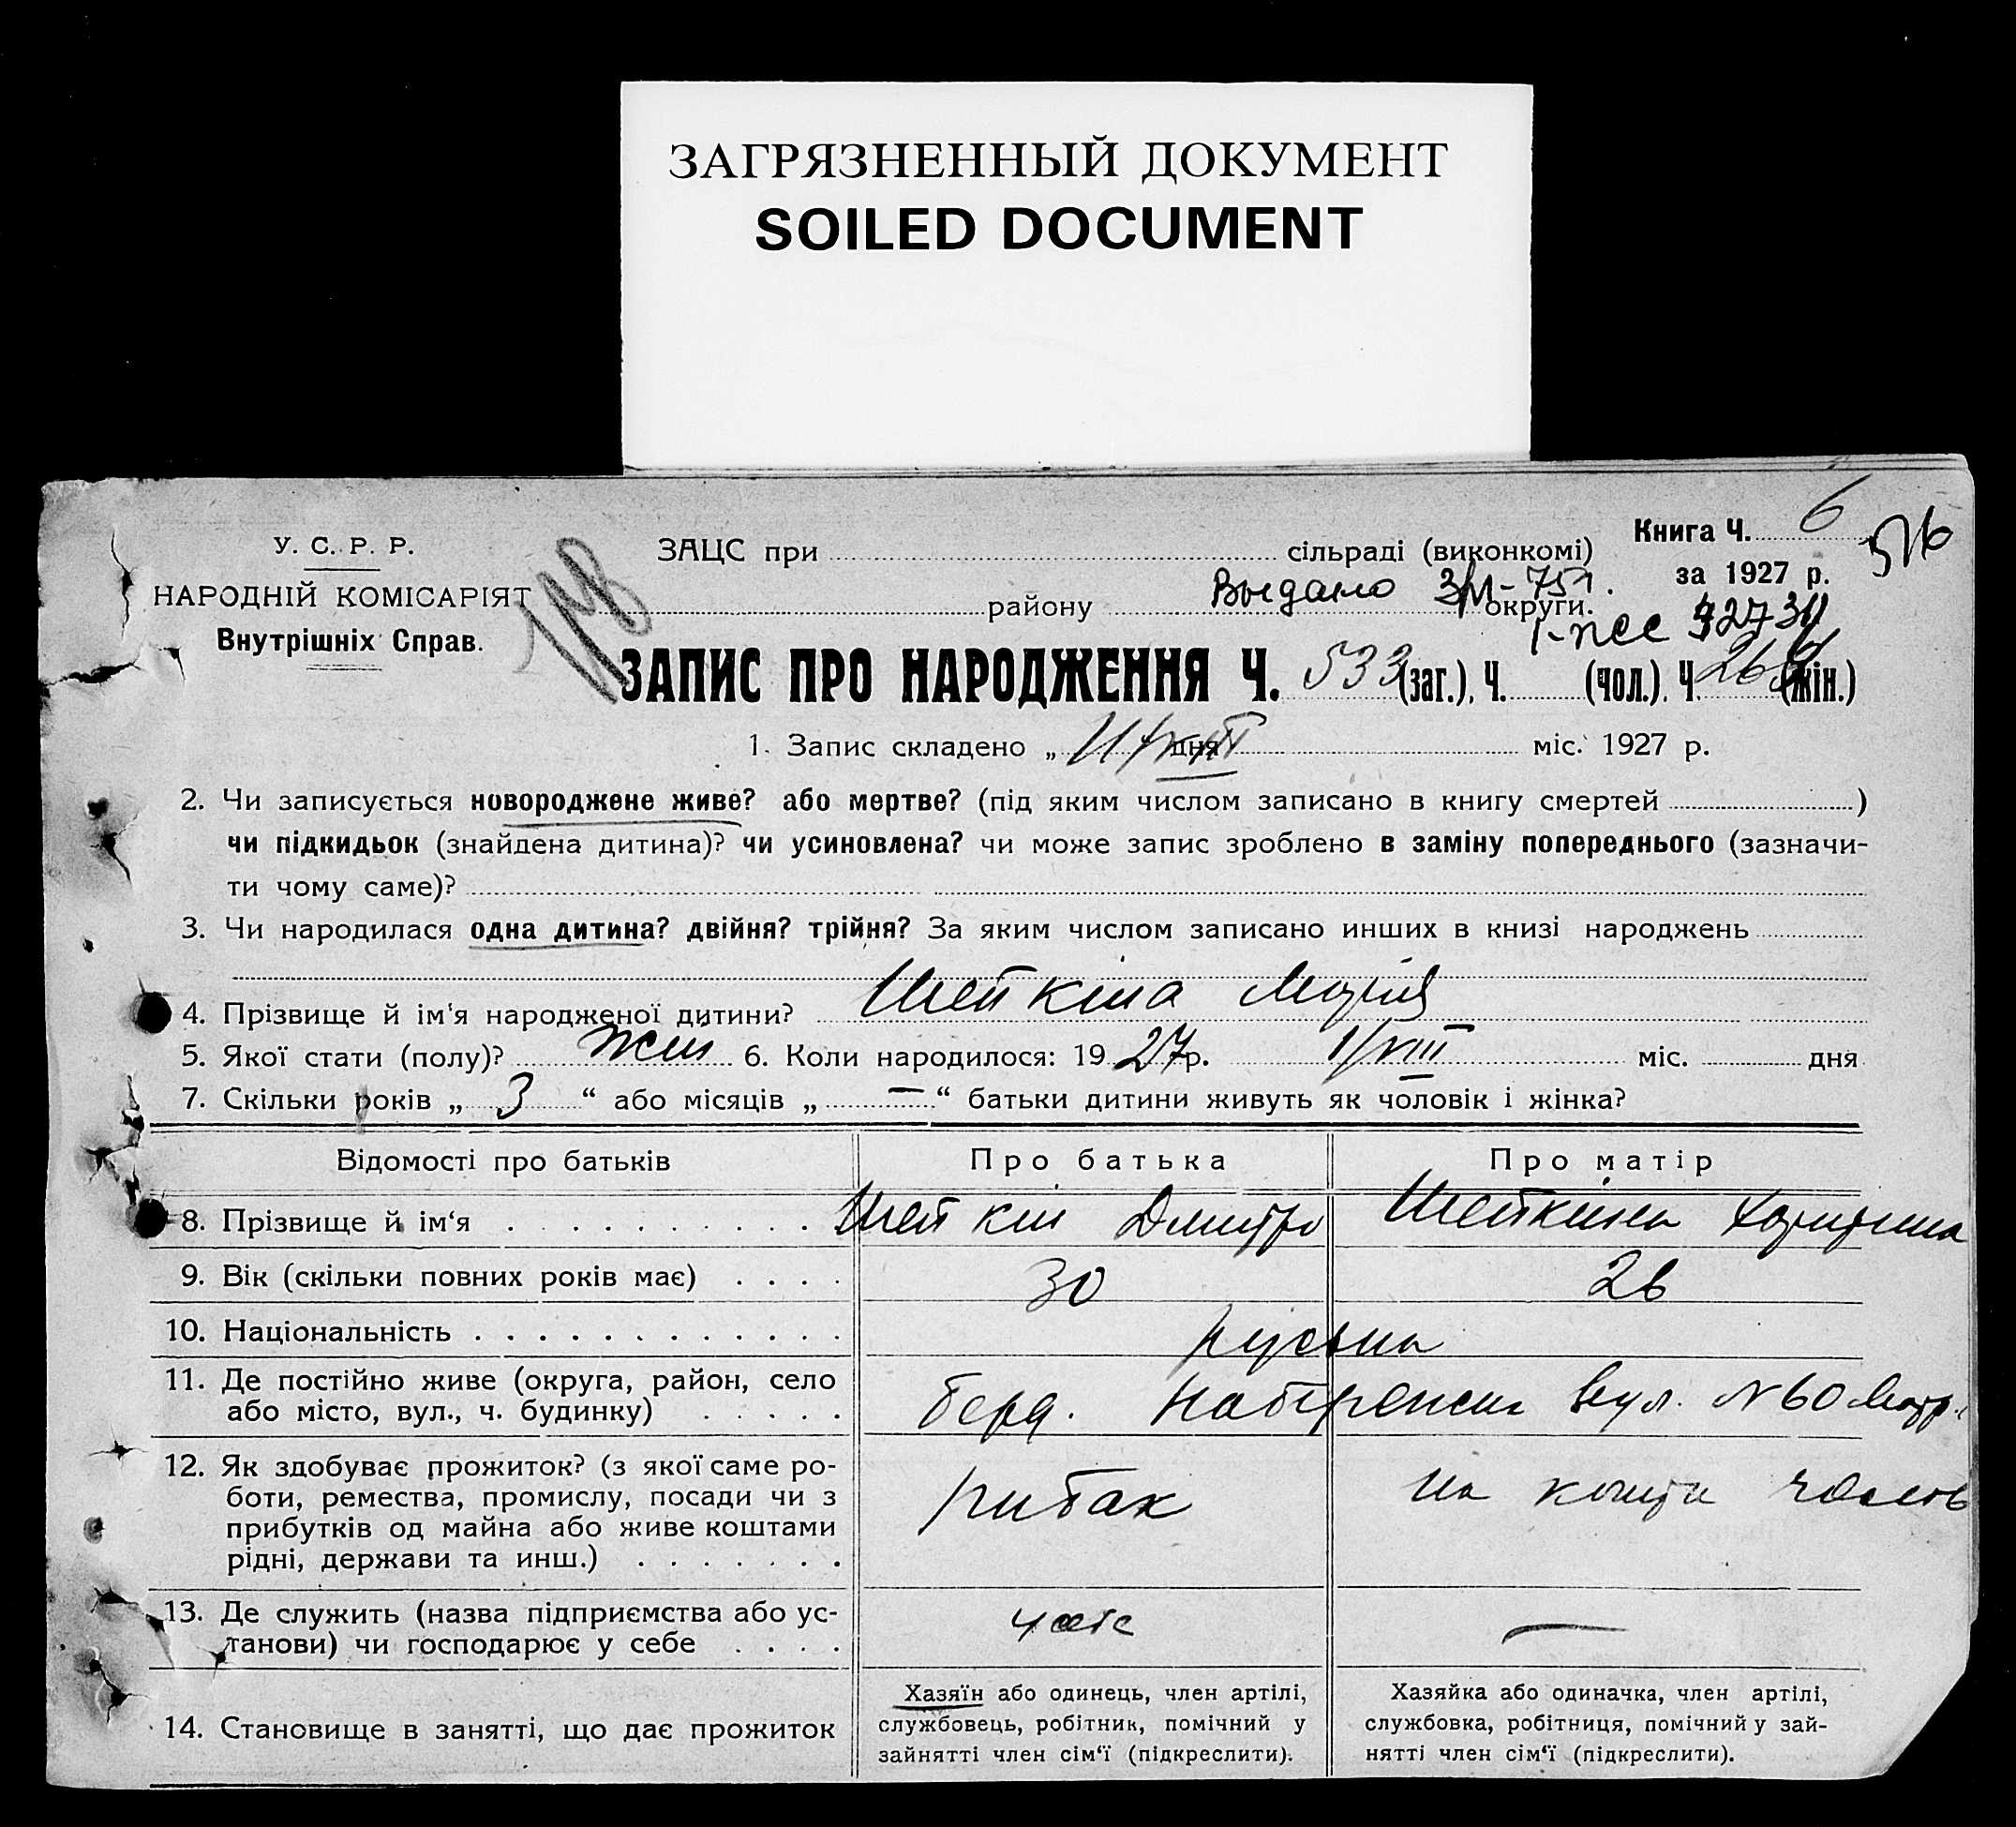 ЗАГРЯЗНЕННЫЙ ДОКУМЕНТ
SOILED DOCUMENT
Книга Ч. 6
за 1927 р.
У. С. Р. Р.
НАРОДНІЙ КОМІСАРІЯТ
Внутрішніх Справ.
ЗАЦС при сільраді (виконкомі)
району Выдано округи.
ЗАПИС ПРО НАРОДЖЕННЯ Ч. 533 (заг.), Ч. (чол.). Ч. (жін.)
1. Запис складено „ дня міс. 1927 р.
2. Чи записується новороджене живе? або мертве? (під яким числом записано в книгу смертей )
чи підкидьок (знайдена дитина)? чи усиновлена? чи може запис зроблено в заміну попереднього (зазначи-
ти чому саме)?
3. Чи народилася одна дитина? двійня? трійня? За яким числом записано инших в книзі народжень
4. Прізвище й ім‘я народженої дитини? Шейкіна Марія
5. Якої стати (полу)? жін 6. Коли народилося: 1927 р. 1/VIII міс. дня
7. Скільки років „ 3 “ або місяців „ — “ батьки дитини живуть як чоловік і жінка?
Відомості про батьків Про батька Про матір
8. Прізвище й ім‘я Шейкін Дмитро Шейкіна Харитина
9. Вік (скільки повних років має) 30 26
10. Національність
11. Де постійно живе (округа, район, село
або місто, вул., ч. будинку) Берд. вул. N 60
12. Як здобуває прожиток? (з якої саме ро-
боти, ремества, промислу, посади чи з
прибутків од майна або живе коштами
рідні, держави та инш.) рибак на кошти
13. Де служить (назва підприємства або ус-
танови) чи господарює у себе —
14. Становище в занятті, що дає прожиток
Хазяїн або одинець, член артілі,
службовець, робітник, помічний у
зайнятті член сім‘ї (підкреслити).
Хазяйка або одиначка, член артілі,
службовка, робітниця, помічний у зай-
нятті член сім‘ї (підкреслити).